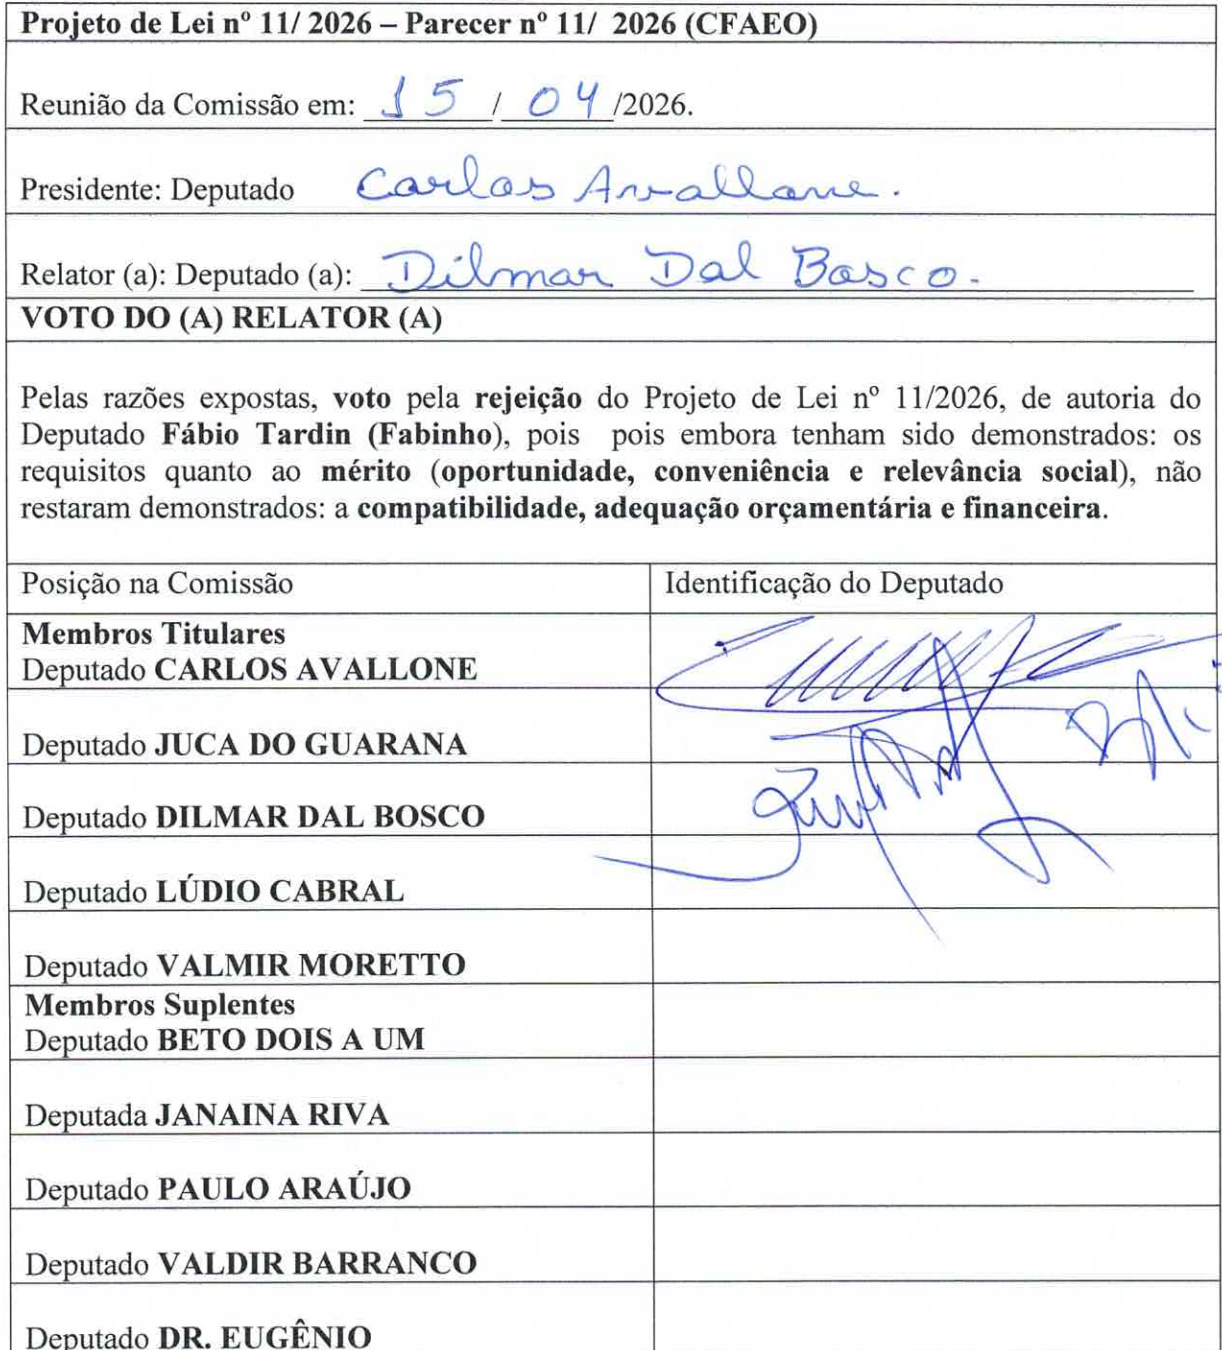 Projeto de Lei nº 11/ 2026 – Parecer nº 11/ 2026 (CFAEO)
Reunião da Comissão em: 15 / 04 /2026.
Presidente: Deputado Carlos Avallone.
Relator (a): Deputado (a): Dilmar Dal Bosco.
VOTO DO (A) RELATOR (A)
Pelas razões expostas, voto pela rejeição do Projeto de Lei nº 11/2026, de autoria do
Deputado Fábio Tardin (Fabinho), pois pois embora tenham sido demonstrados: os
requisitos quanto ao mérito (oportunidade, conveniência e relevância social), não
restaram demonstrados: a compatibilidade, adequação orçamentária e financeira.
Posição na Comissão Identificação do Deputado
Membros Titulares
Deputado CARLOS AVALLONE
Deputado JUCA DO GUARANA
Deputado DILMAR DAL BOSCO
Deputado LÚDIO CABRAL
Deputado VALMIR MORETTO
Membros Suplentes
Deputado BETO DOIS A UM
Deputada JANAINA RIVA
Deputado PAULO ARAÚJO
Deputado VALDIR BARRANCO
Deputado DR. EUGÊNIO